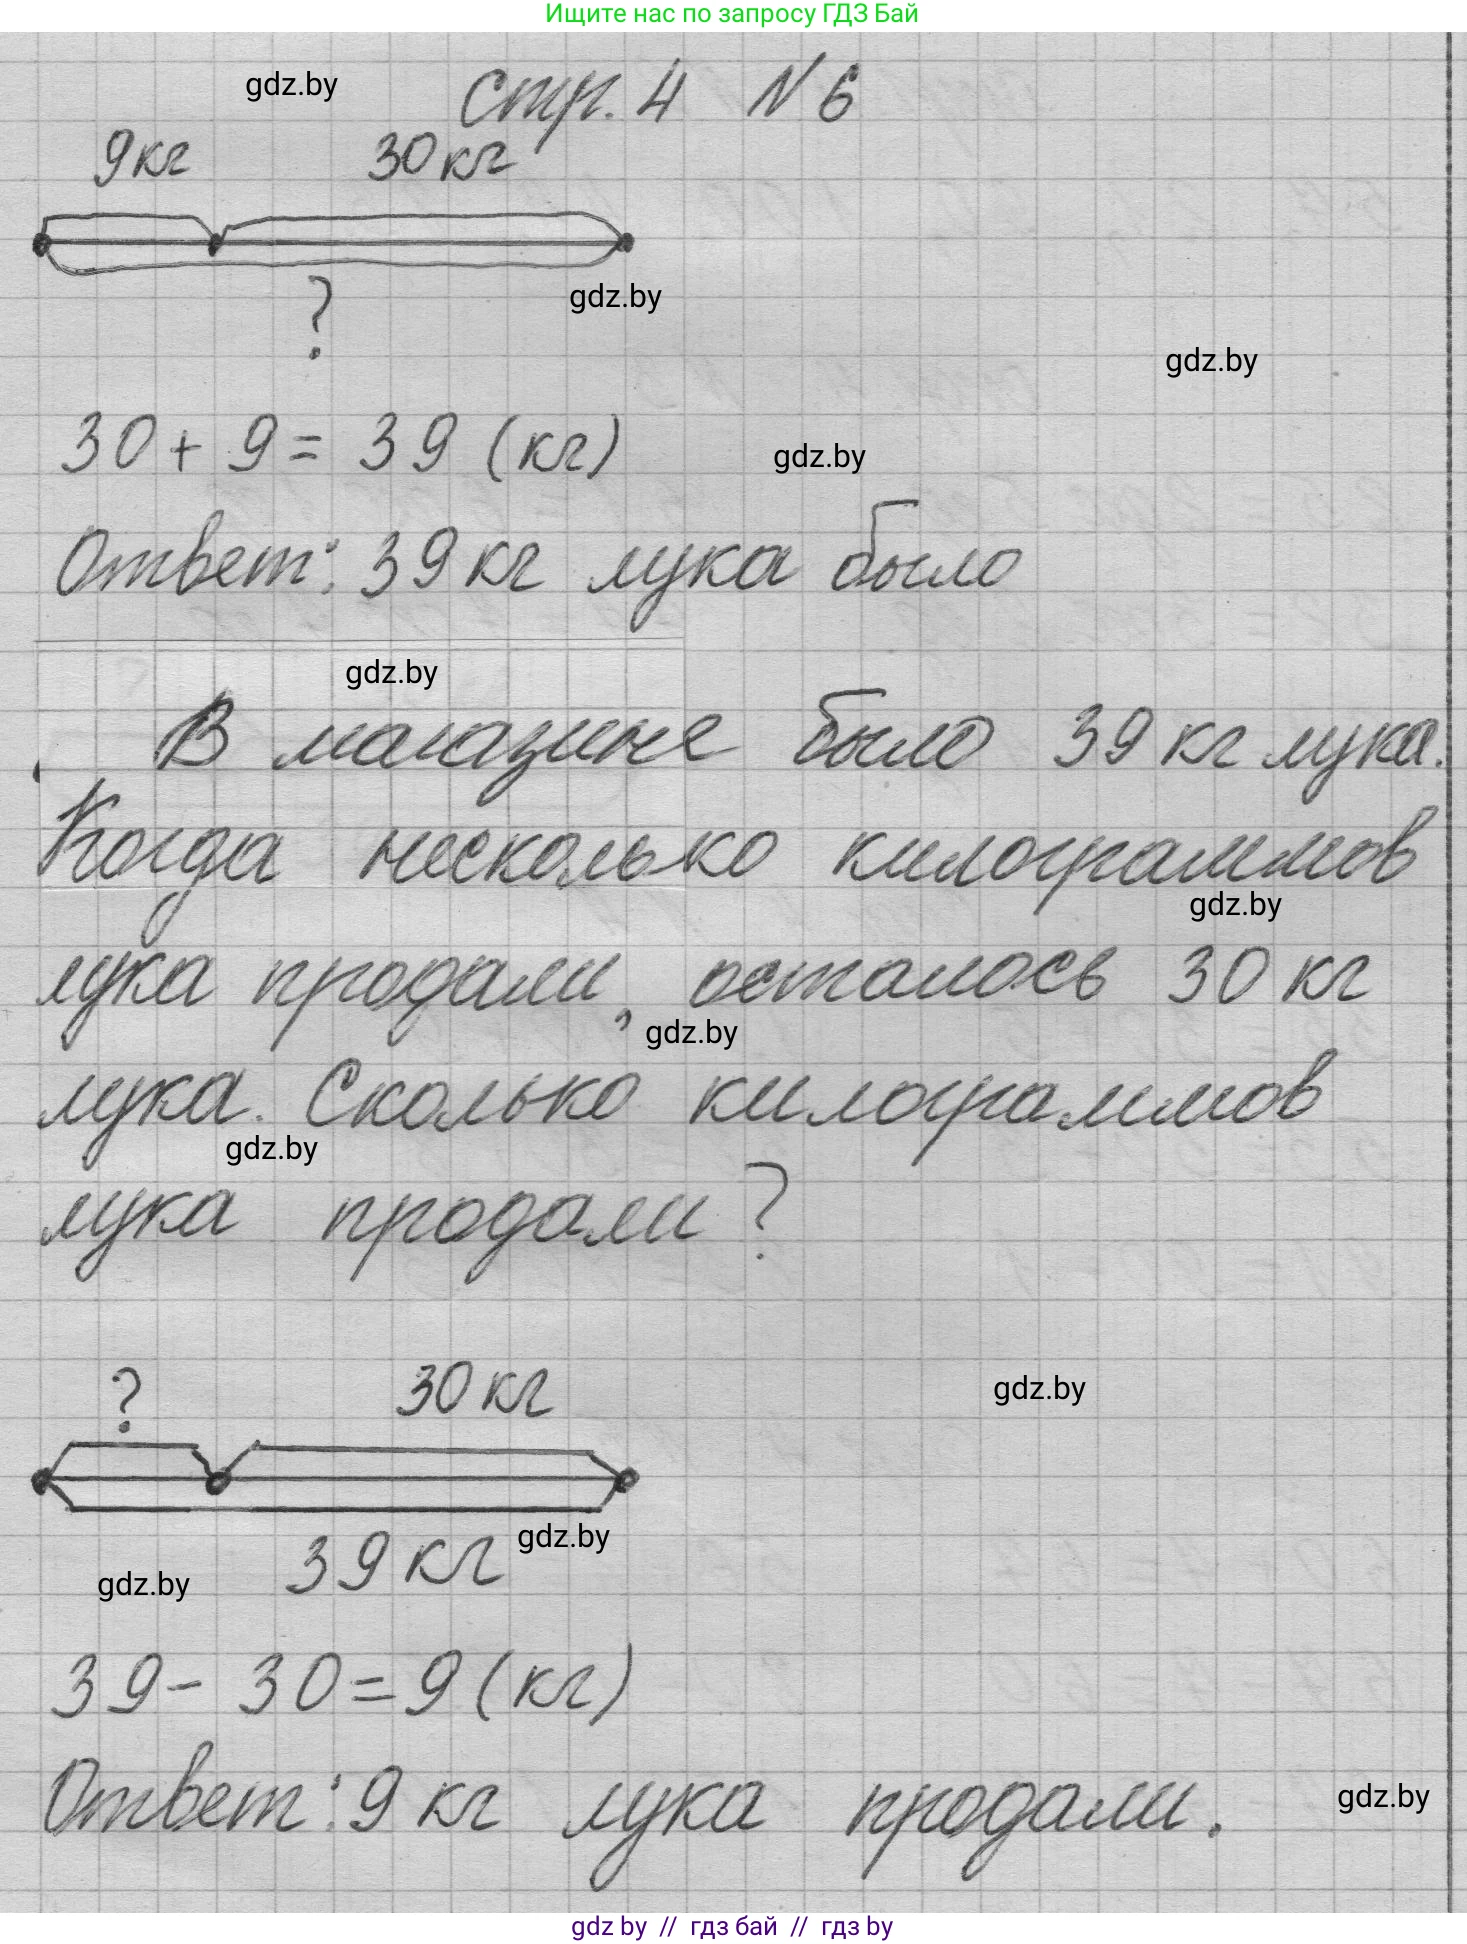 Ищите нас по запросу ГДЗ Бай
gdz.by
Стр. 4 N 6
9 кг 30 кг
gdz.by
?
gdz.by
30 + 9 = 39 (кг)
gdz.by
Ответ: 39 кг лука было
gdz.by
В магазине было 39 кг лука.
Когда несколько килограммов
gdz.by
лука продали, осталось 30 кг
gdz.by
лука. Сколько килограммов
gdz.by
лука продали?
? 30 кг
gdz.by
39 кг
gdz.by
gdz.by
39 - 30 = 9 (кг)
Ответ: 9 кг лука продали.
gdz.by
gdz by // гдз бай // гдз by